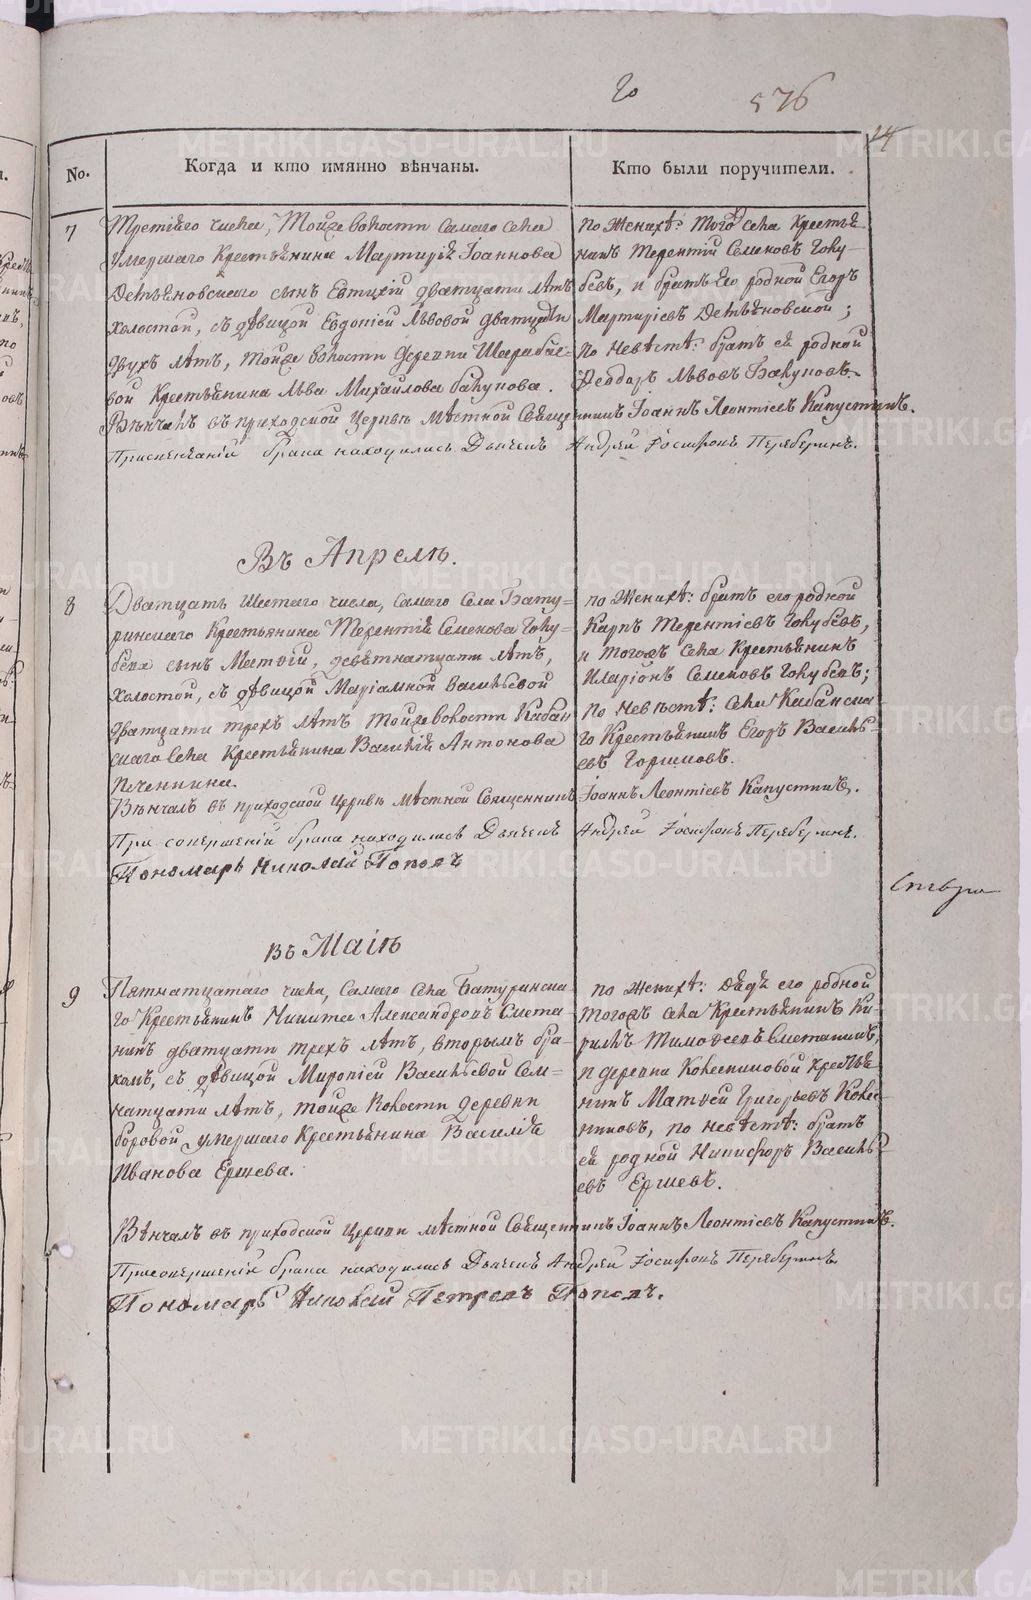 20
576
14
No.
Когда и кто имянно вѣнчаны.
Кто были поручители.
7
Третіяго числа, Тойже волости самаго села
умершаго Крестьянина Мартирія Іоаннова
Детьяновскаго сынъ Евтихій дватцати лѣтъ
холостой, съ дѣвицой Евдокіей Львовой дватцати
двухъ лѣтъ, тойже волости деревни
Крестьянина Льва Михайлова Бакунова.
Вѣнчалъ въ приходской Церквѣ мѣстной Священникъ Іоаннъ Леонтіевъ Капустинъ.
брака находились Дьячекъ Андрей Іосифовъ Переберинъ.
по Женихѣ: тогожъ села Крестья-
нинъ Терентій Семеновъ Голу-
бевъ, и братъ его родной Егоръ
Мартиріевъ Детьяновской;
по Невѣстѣ: братъ ея родной
Феодоръ Львовъ Бакуновъ.
Въ Апрелѣ.
8
Дватцать Шестаго числа, самаго села Бату-
ринскаго Крестьянина Терентія Семенова Голу-
бева сынъ Матѳій, девятнатцати лѣтъ,
холостой, съ дѣвицой Маріамной Васильевой
дватцати трехъ лѣтъ тойже волости Кабан-
скаго села Крестьянина Василія Антонова
Печенкина.
Вѣнчалъ въ приходской Церквѣ мѣстной Священникъ Іоаннъ Леонтіевъ Капустинъ.
При совершеніи брака находились Дьячекъ Андрей Іосифовъ Переберинъ.
Пономарь Николай Поповъ
по Женихѣ: братъ его родной
Карпъ Терентіевъ Голубевъ,
и тогожъ села Крестьянинъ
Иларіонъ Семеновъ Голубевъ;
по Невѣстѣ: села Кабанска-
го Крестьянинъ Егоръ Василь-
евъ Горшковъ.
въ Маіѣ
9
Пятнатцатаго числа, самаго села Батуринска-
го Крестьянинъ Никита Александровъ Смета-
нинъ дватцати трехъ лѣтъ, вторымъ бра-
комъ, съ дѣвицой Миропіей Васильевой Сем-
натцати лѣтъ, тойже волости деревни
боровой умершаго Крестьянина Василія
Иванова Ершева.
Вѣнчалъ въ приходской Церкви мѣстной Священникъ Іоаннъ Леонтіевъ Капустинъ.
При совершеніи брака находились Дьячекъ Андрей Іосифовъ Переберинъ
Пономарь Николай Петровъ Поповъ.
по Женихѣ: дѣдъ его родной
тогожъ села Крестьянинъ Ки-
рилъ Тимоѳеевъ Сметанинъ,
и деревни Колесниковой Крестья-
нинъ Матѳей Григорьевъ Колес-
никовъ, по невѣстѣ: братъ
ея родной Никифоръ Василь-
евъ Ершевъ.
METRIKI.GASO-URAL.RU